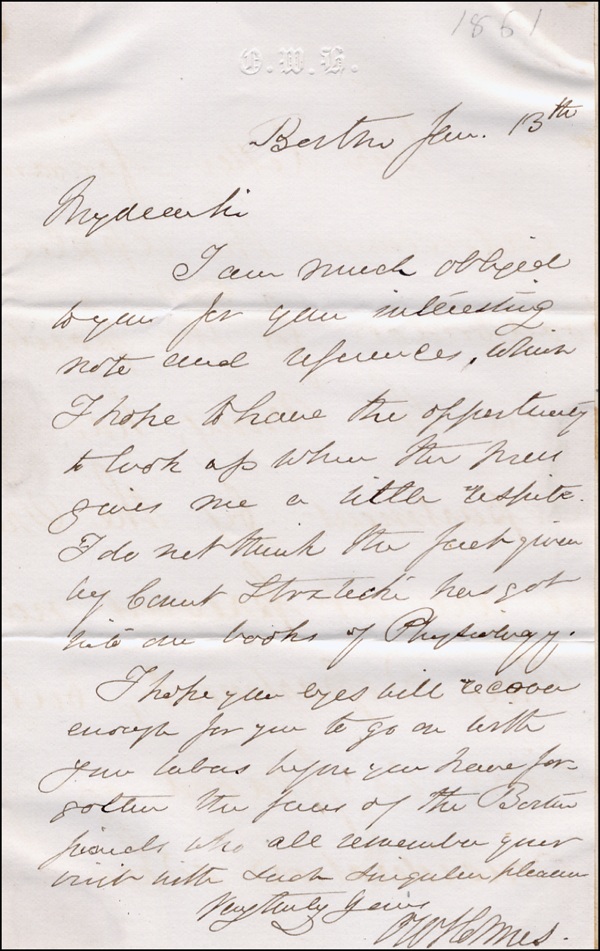 1861
O.W.H.
Boston Jan. 13th
My dear Sir
I am much obliged
to you for your interesting
note and references, which
I hope to have the opportunity
to look up when the press
gives me a little respite.
I do not think the fact given
by Count Strzlecki has got
into our books of Physiology.
I hope your eyes will recover
enough for you to go on with
your labors before you have for-
gotten the faces of the Boston
friends who all remember your
visit with such singular pleasure
Very truly Yours
OW Holmes.